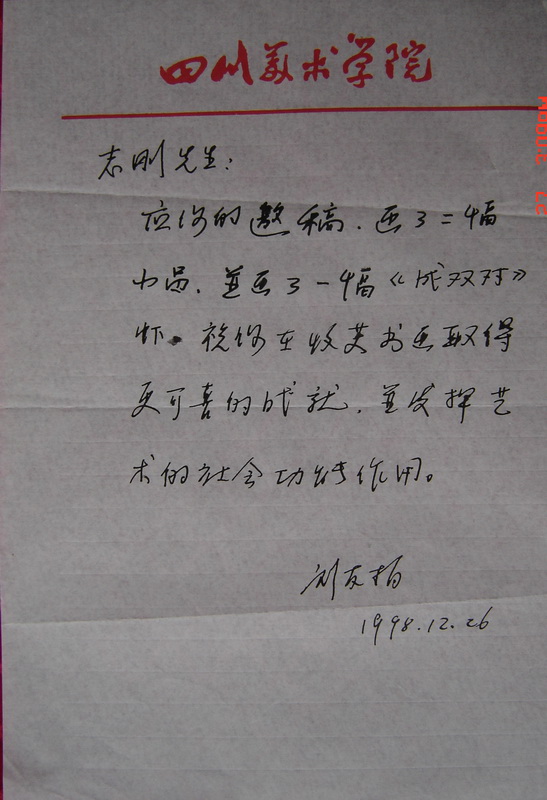 四川美术学院
志刚先生：
应你的邀稿．画了二幅
小品．并画了一幅《成双对》
祝你在收芺书画取得
更可喜的成就．并发挥艺
术的社会功能作用。
刘友栢
1998.12.26